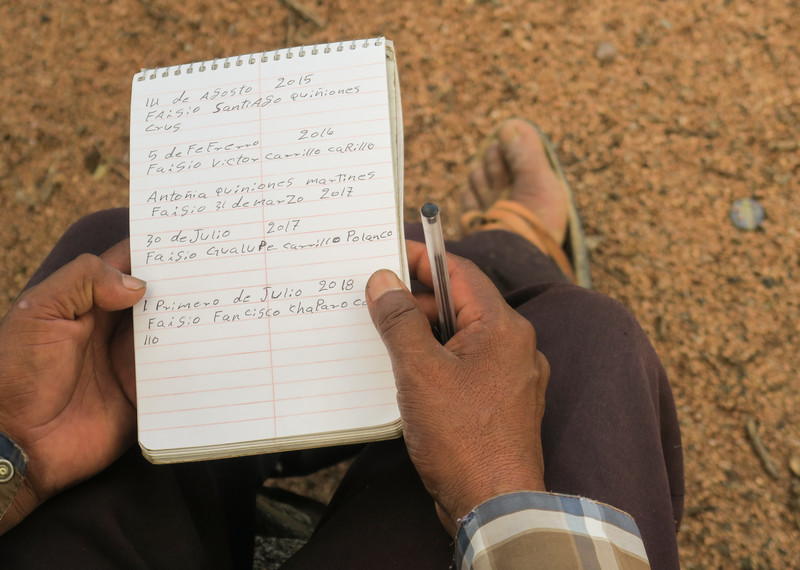 14 de Agosto 2015
FAisio SantiAgo quiñiones
crus
5 de FeFrerro 2016
Faisio Victor carrillo caRillo
Antoñia quiniones martines
Faisio 31 de marzo 2017
30 de Julio 2017
Faisio Gualupe carrillo Polanco
1 Primero de Julio 2018
Faisio Fancisco chaparo
llo